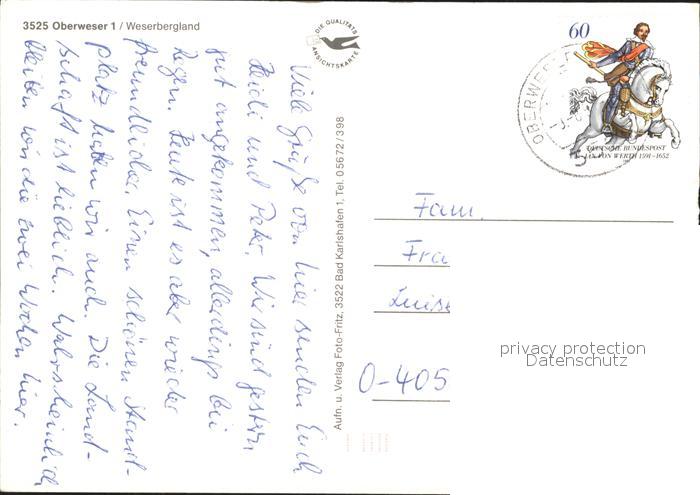 3525 Oberweser 1 / Weserbergland
DIE QUALITÄTS
ANSICHTSKARTE
Viele Grüße von hier senden Euch
Heidi und Peter. Wir sind gestern
gut angekommen, allerdings bei
Regen. Heute ist es aber wieder
freundlicher. Einen schönen Stand-
platz haben wir auch. Die Land-
schaft ist lieblich. Wahrscheinlich
bleiben wir die zwei Wochen hier.
Aufn. u. Verlag Foto-Fritz, 3522 Bad Karlshafen 1, Tel. 05672/398
60
DEUTSCHE BUNDESPOST
JAN VON WERTH 1591-1652
OBERWESER
Fam.
Fra
Luis
O-405
privacy protection
Datenschutz